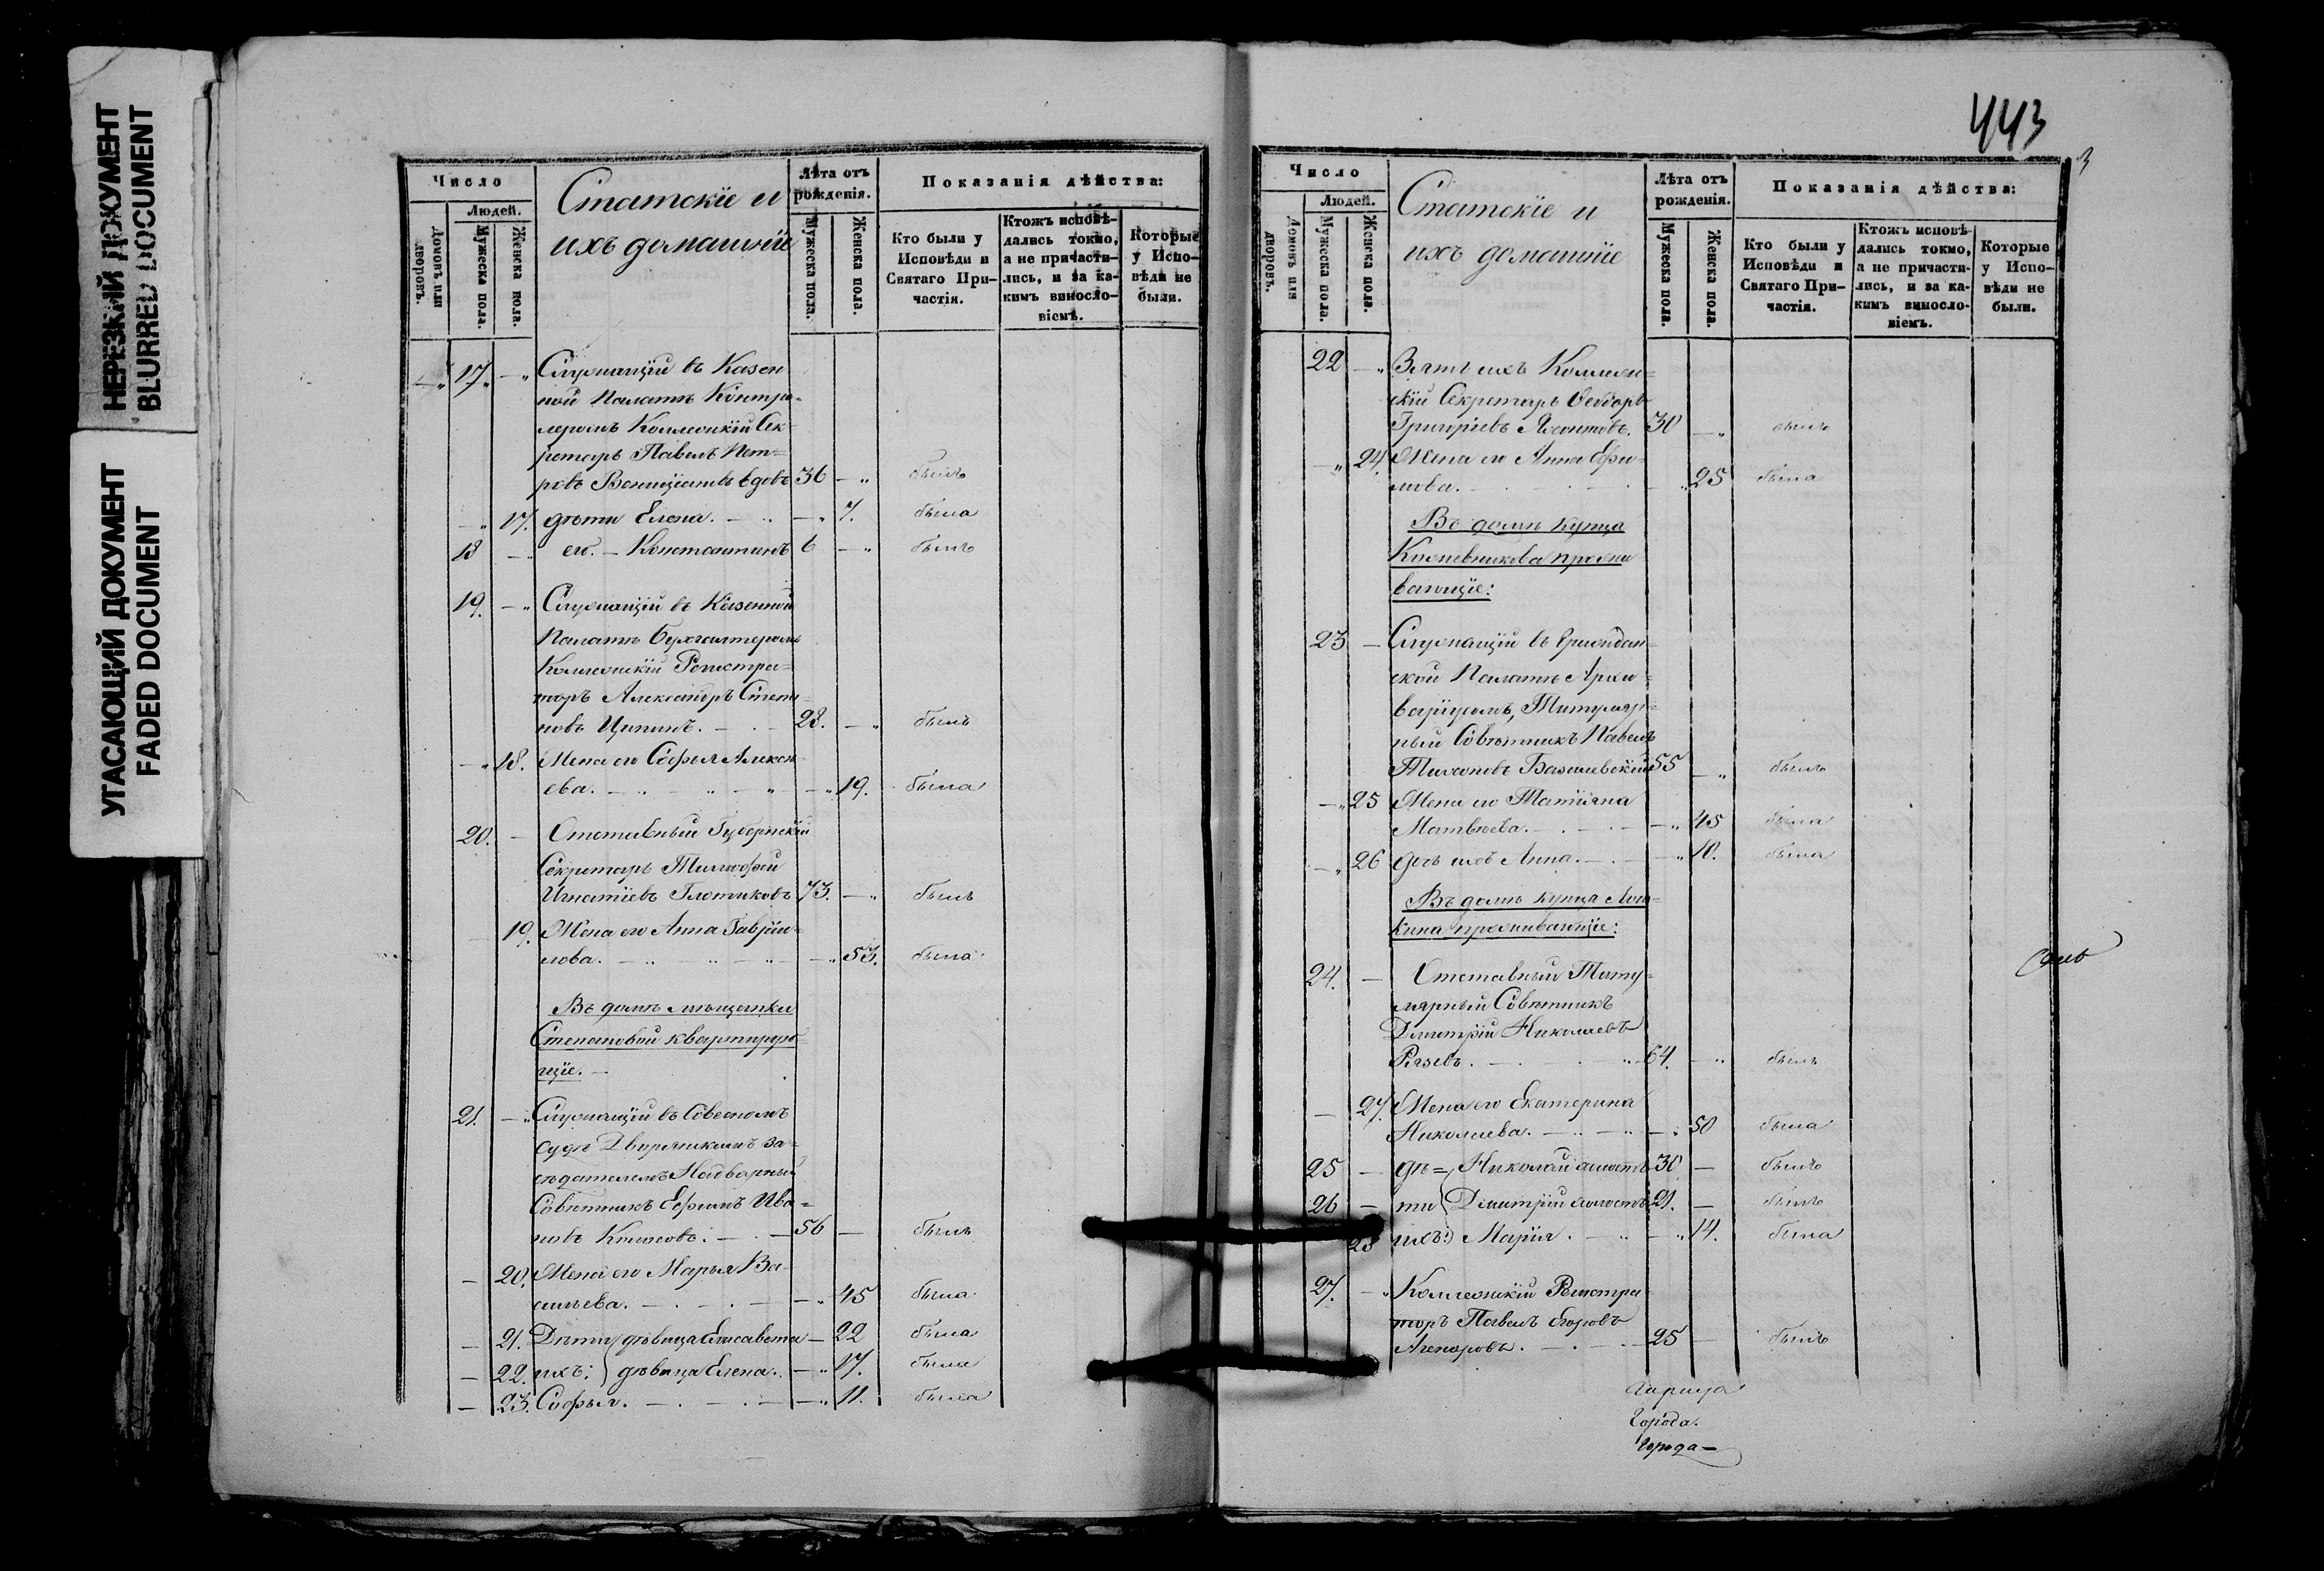 НЕРЕЗКИЙ ДОКУМЕНТ
BLURRED DOCUMENT
УГАСАЮЩИЙ ДОКУМЕНТ
FADED DOCUMENT
Число
Людей.
Домовъ или дворовъ.
Мужеска пола.
Женска пола.
Статскіе и
ихъ домашніе
Лѣта отъ рожденія.
Мужеска пола.
Женска пола.
Показанія дѣйства:
Кто были у Исповѣди и Святаго Причастія.
Ктожъ исповѣдались токмо, а не причастились, и за какимъ винословіемъ.
Которые у Исповѣди не были.
17. Служащій въ Казен
ной Палатѣ Контро=
леромъ Коллежскій Сек=
ретарь Павелъ Пет=
ровъ вдовъ 36 былъ
17. дѣти Елена. 7. была
18 его. Константинъ 6 былъ
19. Служащій въ Казенной
Палатѣ Бухгалтеромъ
Коллежскій Регистра=
торъ Александръ Степа=
новъ Ципинъ. 28. былъ
18. Жена его Софья Алексѣ
ева. 19. была
20. Отставный Губернскій
Секретарь Тимофей
Игнатіевъ Глотиковъ 73. былъ
19. Жена его Анна Гавріи=
лова. 53. была
Въ домѣ мѣщанки
Степановой квартирую
щіе.
21. Служащій въ Совестномъ
Судѣ Дворянскимъ за=
седателемъ Надворный
Совѣтникъ Ефимъ Ива=
новъ 56 былъ
20. Жена его Марья Ва=
сильева. 45 была
21. Дѣти дѣвица Елисавета 22 была
22. ихъ: дѣвица Елена. 17. была
23. Софья. 11. была
443
3
Число
Людей.
Домовъ или дворовъ.
Мужеска пола.
Женска пола.
Статскіе и
ихъ домашніе
Лѣта отъ рожденія.
Мужеска пола.
Женска пола.
Показанія дѣйства:
Кто были у Исповѣди и Святаго Причастія.
Ктожъ исповѣдались токмо, а не причастились, и за какимъ винословіемъ.
Которые у Исповѣди не были.
22 Зять ихъ Коллеж=
скій Секретарь Ѳеодоръ
Григоріевъ Леонтовъ. 30 былъ
24. Жена его Анна Ефи=
мова. 25 была
Въ домѣ купца
Кожевникова прожи
вающіе:
23 Служащій въ Граждан=
ской Палатѣ Архи=
варіусомъ, Титуляр=
ный Совѣтникъ Павелъ
Тихоновъ Базилевскій 55 былъ
25 Жена его Татіяна
Матвѣева. 45 была
26 дочь ихъ Анна. 10. была
Въ домѣ купца
проживающіе:
24. Отставный Титу=
лярный Совѣтникъ
Дмитрій Николаевъ
Рязевъ. 64. былъ
27. Жена его Екатерина
Николаева. 50 была
25 дѣ= Николай холостъ 30 былъ
26 ти Димитрій холостъ 21. былъ
28 ихъ: Марія. 14. была
27. Коллежскій Регистра
торъ Павелъ Егоровъ
25 былъ
Города.
Города